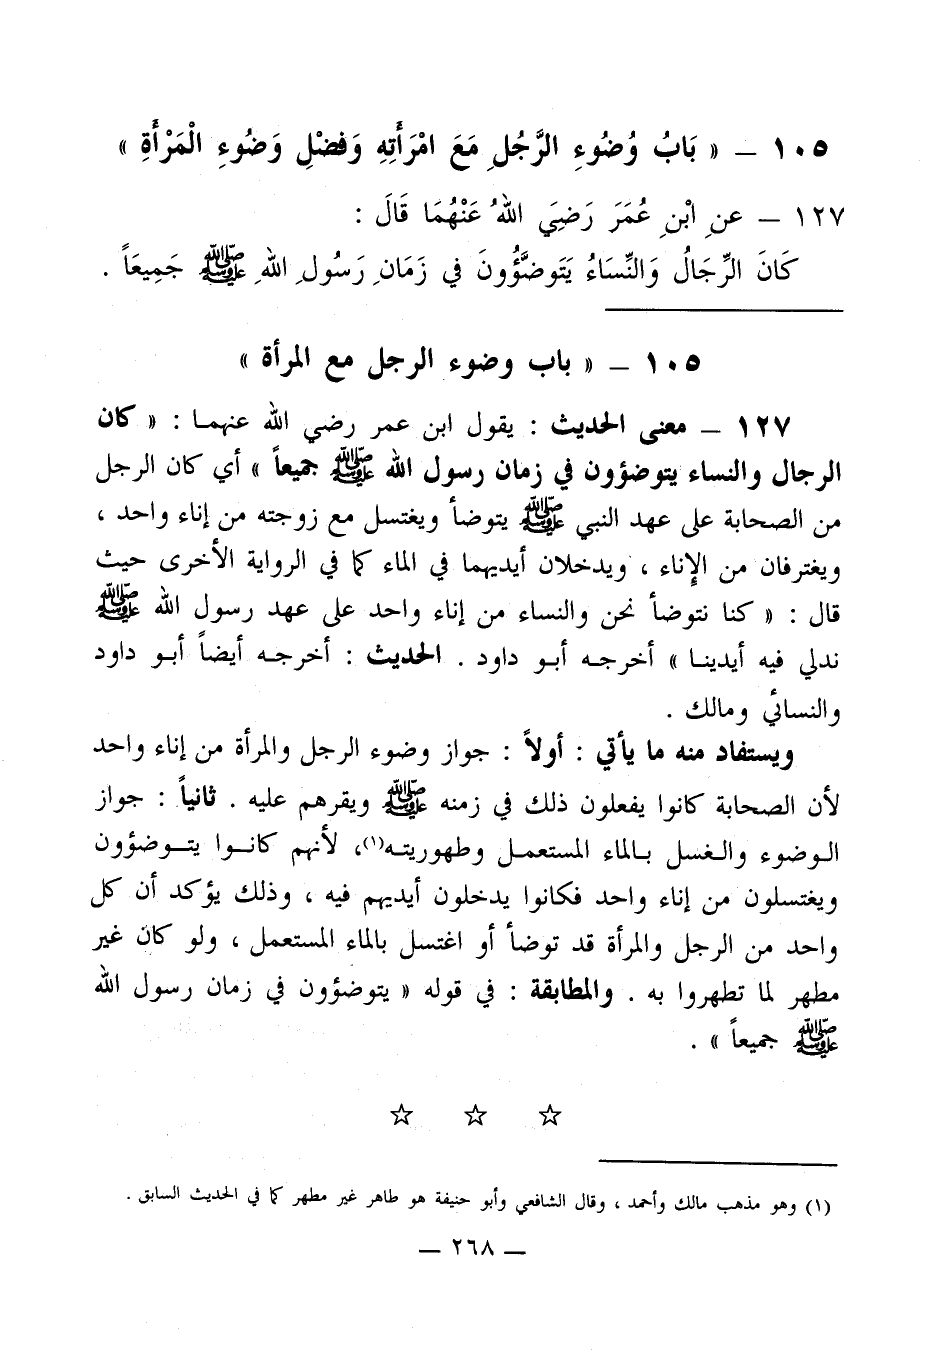 ١٠٥ – « بَابُ وُضُوءِ الرَّجُلِ مَعَ امْرَأَتِهِ وَفَضْلِ وَضُوءِ الْمَرْأَةِ »
١٢٧ – عنِ ابْنِ عُمَرَ رَضِيَ اللهُ عَنْهُمَا قَالَ :
كَانَ الرِّجَالُ وَالنِّسَاءُ يَتَوضَّؤُونَ في زَمَانِ رَسُولِ اللهِ ﷺ جَمِيعَاً .
١٠٥ – « باب وضوء الرجل مع المرأة »
١٢٧ – معنى الحديث : يقول ابن عمر رضي الله عنهما : « كان
الرجال والنساء يتوضؤون في زمان رسول الله ﷺ جميعاً » أي كان الرجل
من الصحابة على عهد النبي ﷺ يتوضأ ويغتسل مع زوجته من إناء واحد ،
ويغترفان من الإِناء ، ويدخلان أيديهما في الماء كما في الرواية الأخرى حيث
قال : « كنا نتوضأ نحن والنساء من إناء واحد على عهد رسول الله ﷺ
ندلي فيه أيدينا » أخرجه أبو داود . الحديث : أخرجه أيضاً أبو داود
والنسائي ومالك .
ويستفاد منه ما يأتي : أولاً : جواز وضوء الرجل والمرأة من إناء واحد
لأن الصحابة كانوا يفعلون ذلك في زمنه ﷺ ويقرهم عليه . ثانياً : جواز
الوضوء والغسل بالماء المستعمل وطهوريته(١)، لأنهم كانوا يتوضؤون
ويغتسلون من إناء واحد فكانوا يدخلون أيديهم فيه ، وذلك يؤكد أن كل
واحد من الرجل والمرأة قد توضأ أو اغتسل بالماء المستعمل ، ولو كان غير
مطهر لما تطهروا به . والمطابقة : في قوله « يتوضؤون في زمان رسول الله
ﷺ جميعاً » .
☆ ☆ ☆
(١) وهو مذهب مالك وأحمد ، وقال الشافعي وأبو حنيفة هو طاهر غير مطهر كما في الحديث السابق .
– ٢٦٨ –